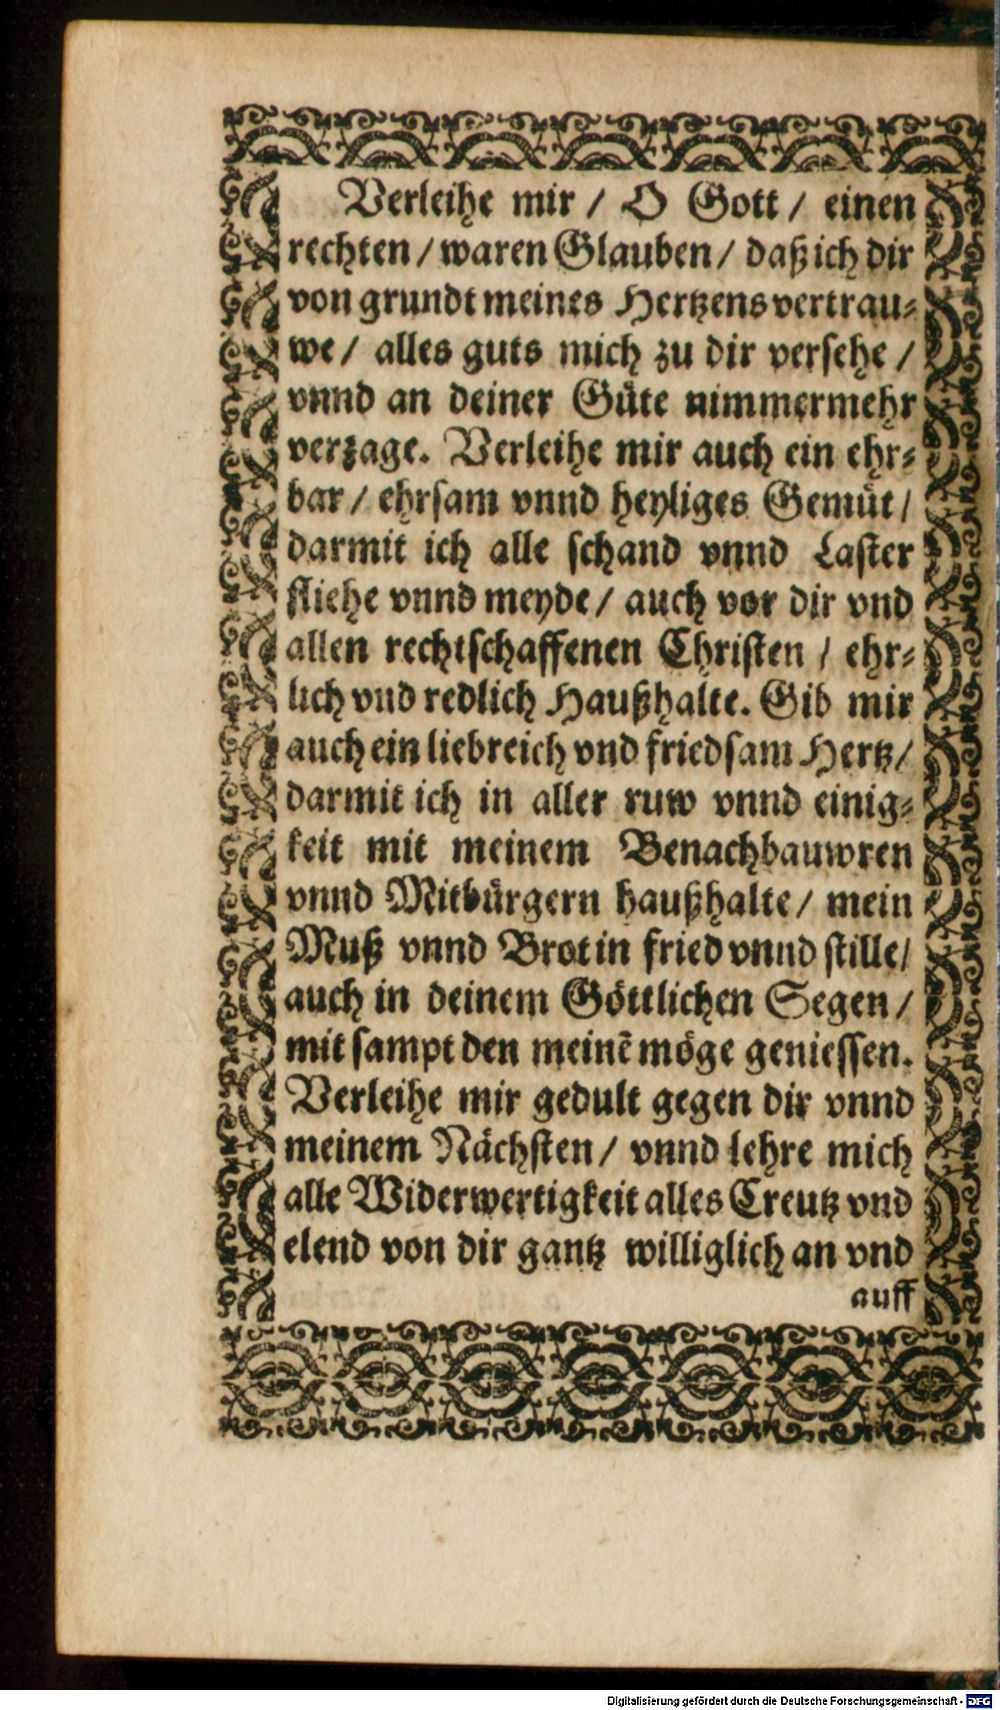 Verleihe mir / O Gott / einen
rechten / waren Glauben / daß ich dir
von grundt meines Hertzens vertrau⸗
we / alles guts mich zu dir versehe /
vnnd an deiner Güte nimmermehr
verzage. Verleihe mir auch ein ehr⸗
bar / ehrsam vnnd heyliges Gemüt /
darmit ich alle schand vnnd Laster
fliehe vnnd meyde / auch vor dir vnd
allen rechtschaffenen Christen / ehr⸗
lich vnd redlich Haußhalte. Gib mir
auch ein liebreich vnd friedsam Hertz /
darmit ich in aller ruw vnnd einig⸗
keit mit meinem Benachbauwren
vnnd Mitbürgern haußhalte / mein
Muß vnnd Brot in fried vnnd stille /
auch in deinem Göttlichen Segen /
mit sampt den meinẽ möge geniessen.
Verleihe mir gedult gegen dir vnnd
meinem Nächsten / vnnd lehre mich
alle Widerwertigkeit alles Creutz vnd
elend von dir gantz williglich an vnd
auff
Digitalisierung gefördert durch die Deutsche Forschungsgemeinschaft - DFG